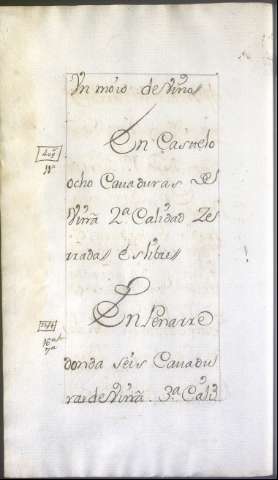 Un moio de vino
En Casuelo
ocho Cauaduras de
Viña 2ª Calidad Ze
rrada es libre
En Penarre
donda seis Cauadu
ras de Viña 3ª Calid